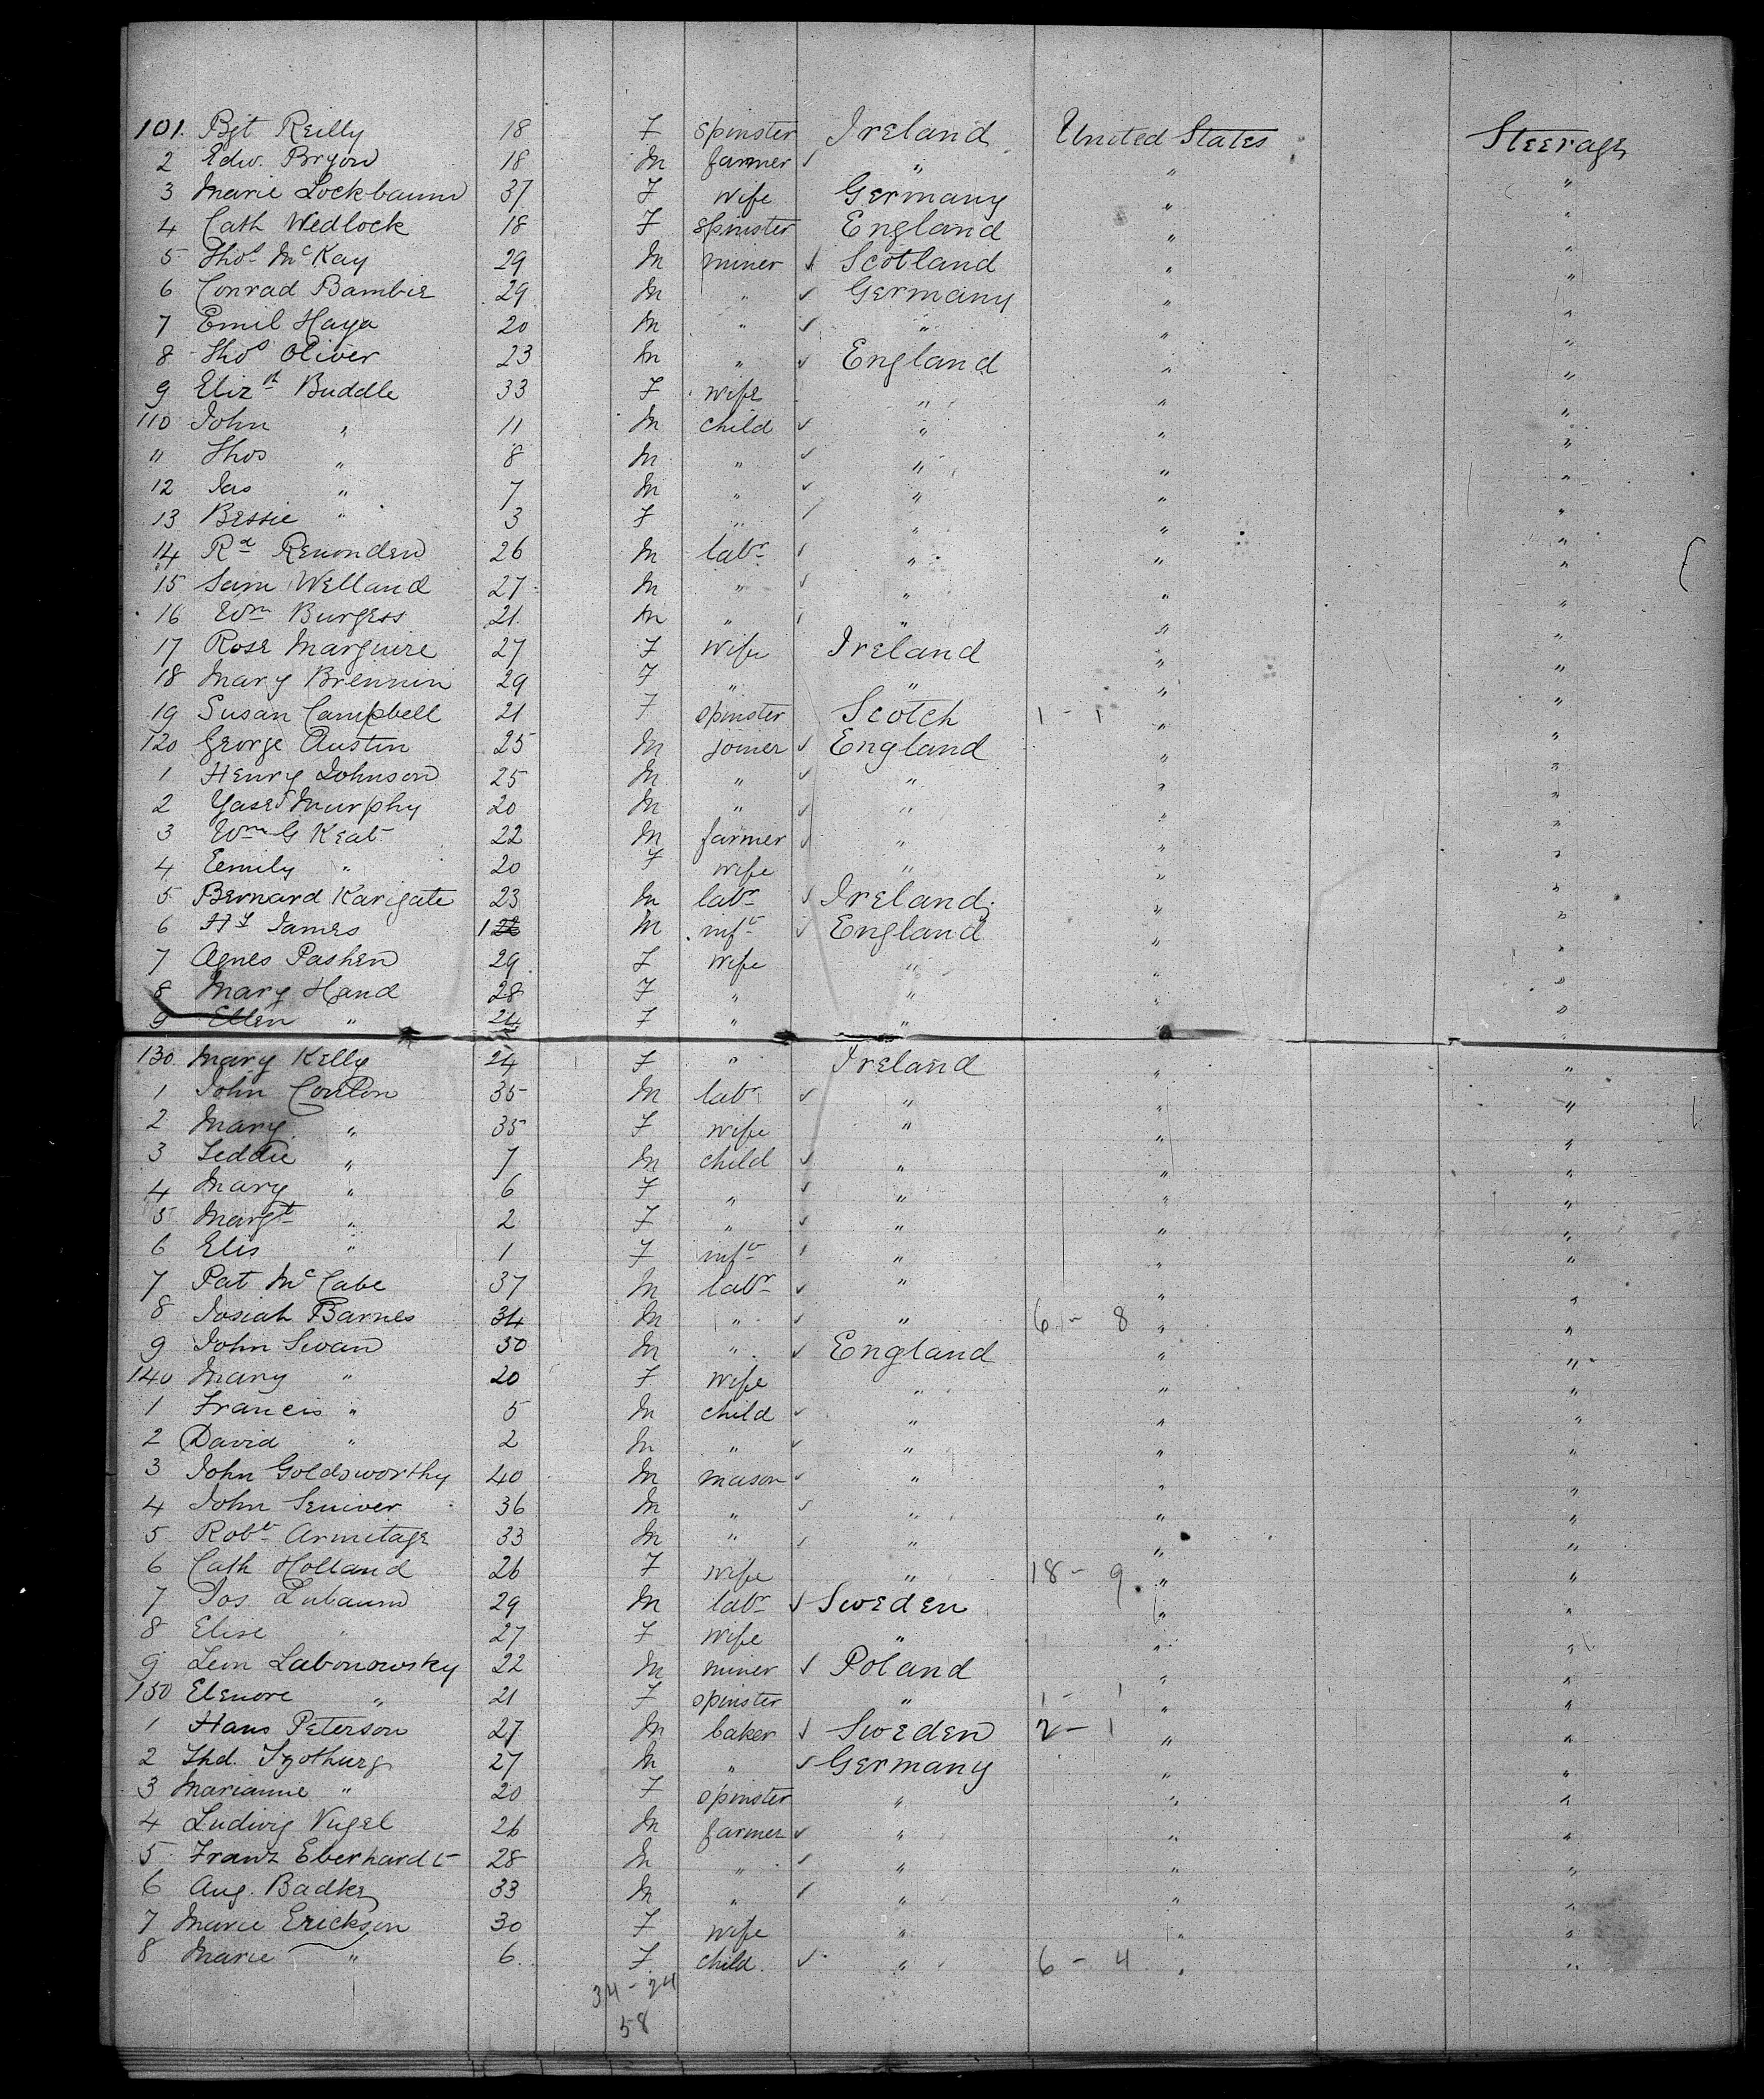 101. Bgt Reilly 18 F Spinster Ireland United States Steerage
2 Edw. Bryon 18 M farmer ✓ " " "
3 Marie Lockbaum 37 F Wife Germany " "
4 Cath Wedlock 18 F Spinster England " "
5 Thos McKay 29 M miner ✓ Scotland " "
6 Conrad Bambie 29 M " ✓ Germany " "
7 Emil Haya 20 M " ✓ " " "
8 Thos Oliver 23 M " ✓ England " "
9 Elizth Buddle 33 F Wife " " "
110 John " 11 M child ✓ " " "
" Thos " 8 M " ✓ " " "
12 Jas " 7 M " ✓ " " "
13 Bessie " 3 F " ✓ " " "
14 Rd 26 M labr ✓ " " "
15 Sam Welland 27 M " ✓ " " "
16 Wm Burgess 21 M " ✓ " " "
17 Rose Marguire 27 F Wife Ireland " "
18 Mary Brennin 29 F " " " "
19 Susan Campbell 21 F Spinster Scotch 1 - 1 " "
120 George Austin 25 M joiner ✓ England " "
1 Henry Johnson 25 M " ✓ " " "
2 Murphy 20 M " ✓ " " "
3 Wm G Keat 22 M farmer ✓ " " "
4 Eemily " 20 F wife " " "
5 Bernard Karigate 23 M labr ✓ Ireland " "
6 Hy James 1 M inft ✓ England " "
7 Agnes Pashen 29 F Wife " " "
8 Mary Hand 28 F " " " "
9 Ellen " 24 F " " " "
130. Mary Kelly 24 F " Ireland " "
1 John Conlon 35 M labr ✓ " " "
2 Mary " 35 F wife " " "
3 Teddie " 7 M child ✓ " " "
4 Mary " 6 F " ✓ " " "
5 Margt " 2 F " ✓ " " "
6 Elis " 1 F inft ✓ " " "
7 Pat McCabe 37 M labr ✓ " " "
8 Josiah Barnes 34 M " ✓ " 6 - 8 " "
9 John Swan 30 M " ✓ England " "
140 Mary " 20 F Wife " " "
1 Francis " 5 M child ✓ " " "
2 David " 2 M " ✓ " " "
3 John Goldsworthy 40 M mason ✓ " " "
4 John Seniver 36 M " ✓ " " "
5 Robt Armitage 33 M " ✓ " " "
6 Cath Holland 26 F wife " 18 - 9 " "
7 Jos Lubaum 29 M labr ✓ Sweden " "
8 Elise " 27 F wife " " "
9 Leon Labonowsky 22 M miner ✓ Poland " "
150 Elenore " 21 F spinster " 1 - 1 " "
1 Hans Peterson 27 M baker ✓ Sweden 2 - 1 " "
2 Thd. 27 M " ✓ Germany " "
3 Marianne " 20 F spinster " " "
4 Ludwig Vugel 26 M farmer ✓ " " "
5 Franz Eberhardt 28 M " ✓ " " "
6 Aug. Badke 33 M " ✓ " " "
7 Marie Erickson 30 F wife " " "
8 Marie " 6 F child ✓ " 6 - 4 " "
34 - 24
58